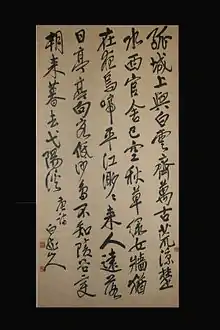 孤城上與白雲齊萬古荒涼楚
水西官舍已空秋草綠女牆猶
在夜烏啼平江渺〻來人遠落
日亭〻向客低沙鳥不知陵谷變
朝來暮去弋陽溪 唐詩